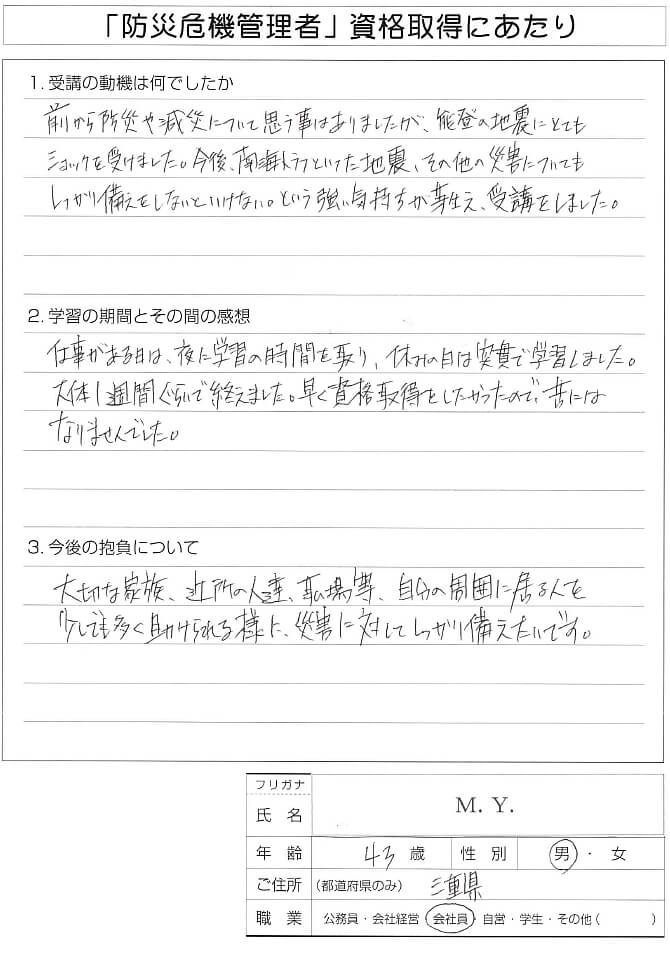 「防災危機管理者」資格取得にあたり
1. 受講の動機は何でしたか
前から防災や減災について思う事はありましたが、能登の地震にとても
ショックを受けました。今後、南海トラフといった地震、その他の災害についても
しっかり備えをしないといけない。という強い気持ちが芽生え、受講をしました。
2. 学習の期間とその間の感想
仕事がある日は、夜に学習の時間を取り、休みの日は実費で学習しました。
大体1週間ぐらいで終えました。早く資格取得をしたかったので、苦には
なりませんでした。
3. 今後の抱負について
大切な家族、近所の人達、職場等、自分の周囲に居る人を
少しでも多く助けられる様に、災害に対してしっかり備えたいです。
フリガナ
氏名 M. Y.
年齢 43歳 性別 男・女
ご住所 (都道府県のみ) 三重県
職業 公務員・会社経営・会社員・自営・学生・その他( )